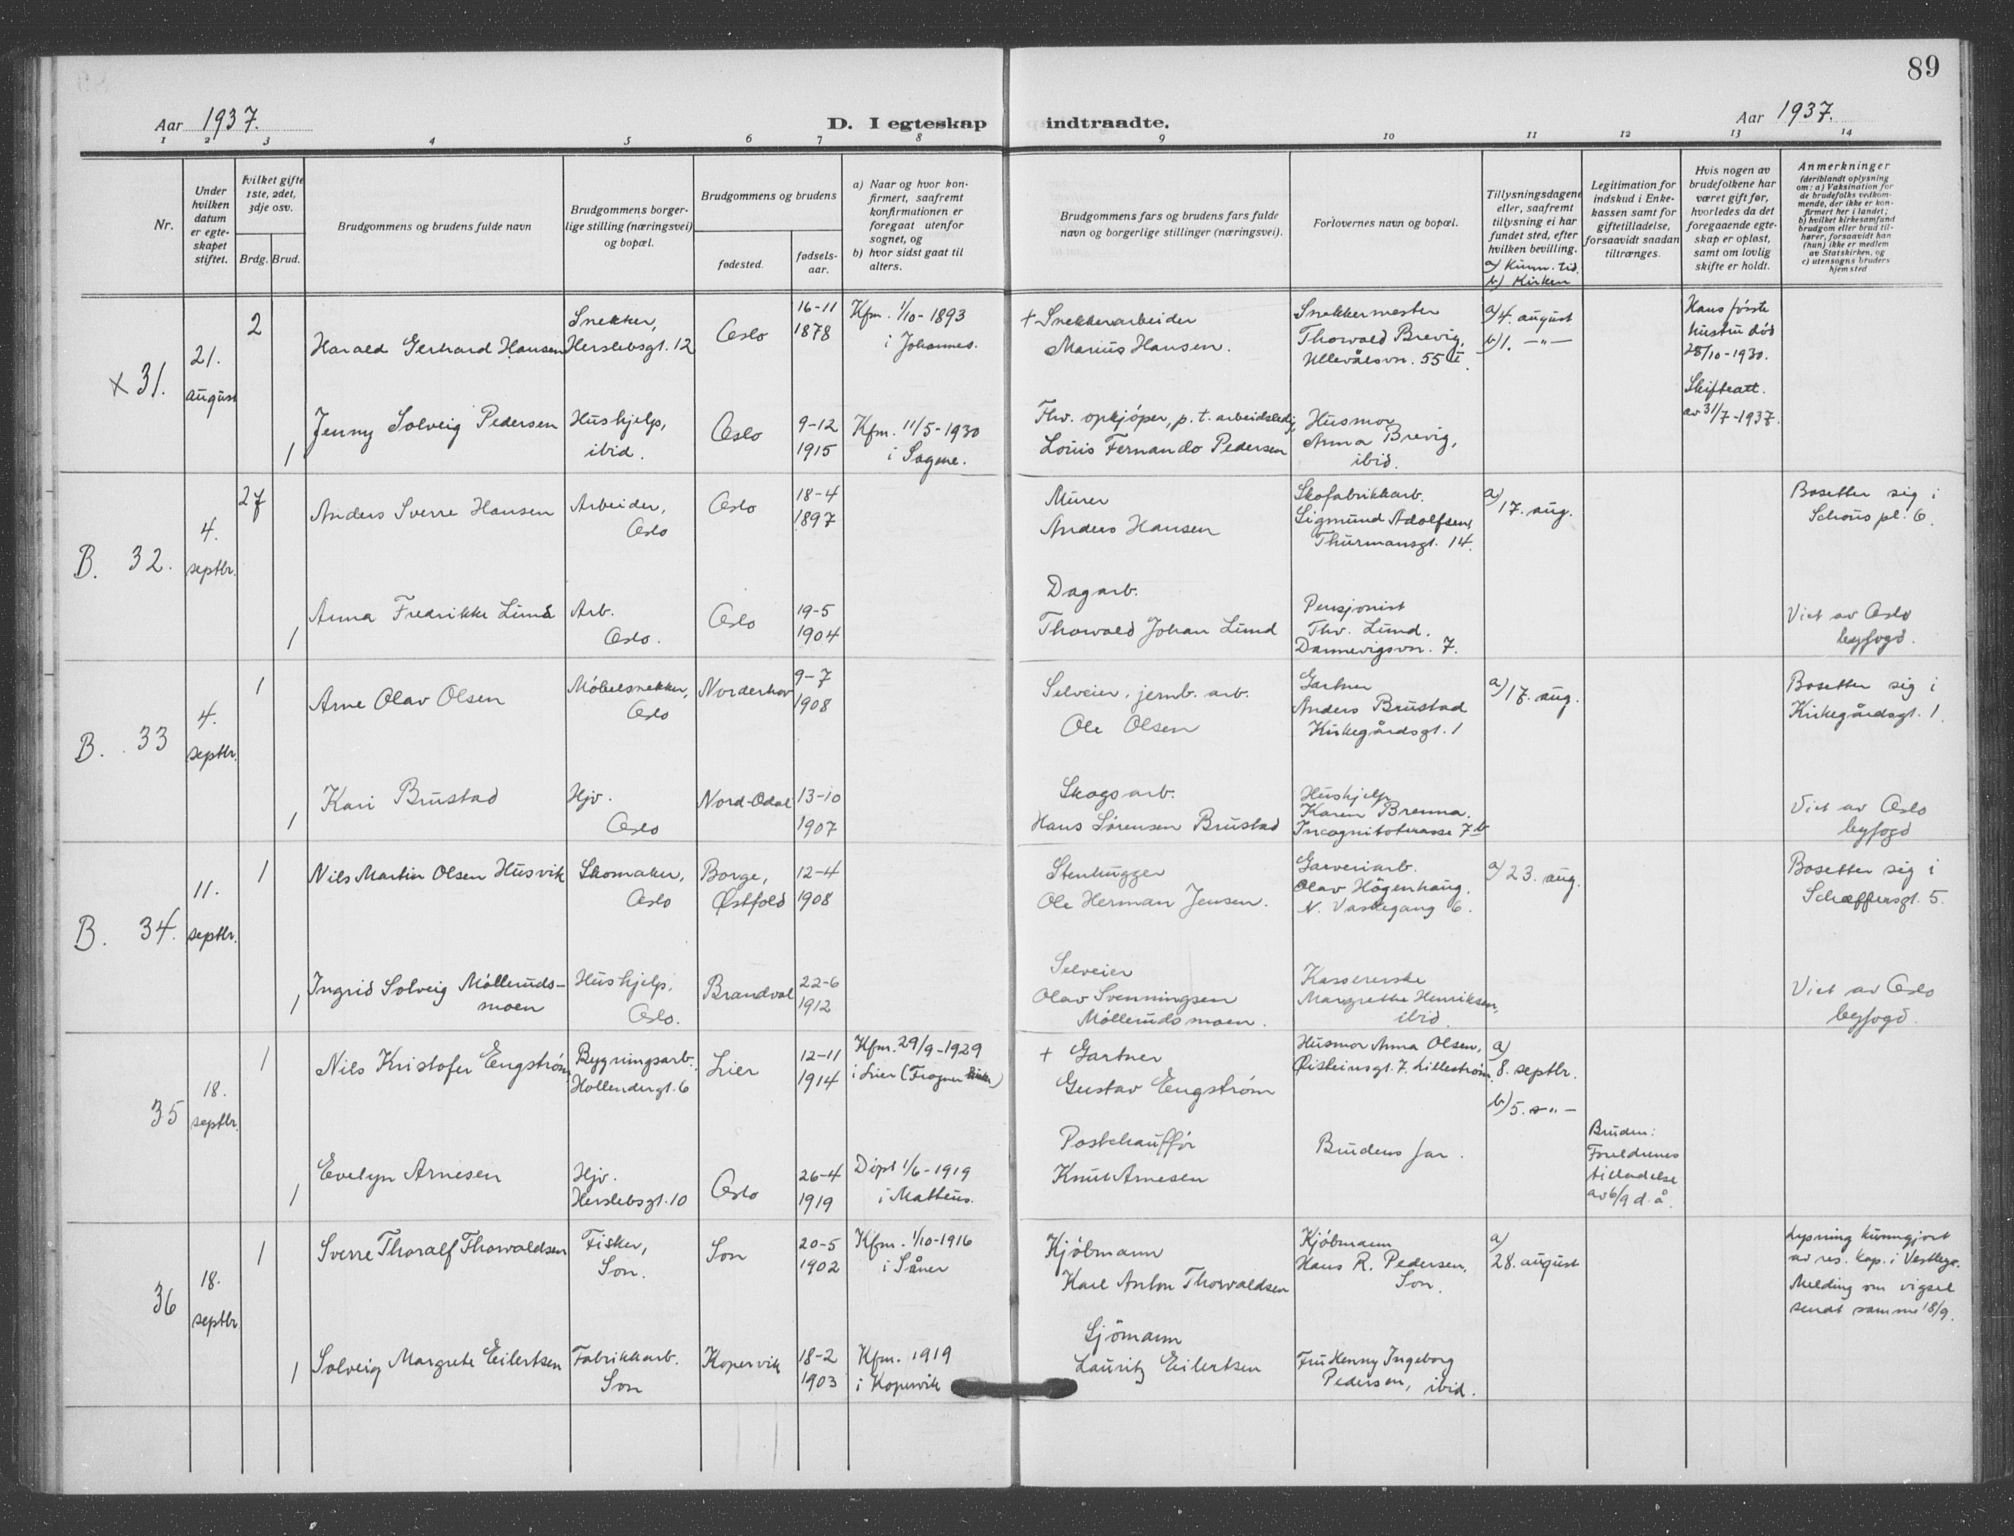 89
Aar 1937.
D. I egteskap indtraadte.
Aar 1937.
1 2 3 4 5 6 7 8 9 10 11 12 13 14
Nr.
Under
hvilken
datum
er egte-
skapet
stiftet.
Hvilket gifte
1ste, 2det,
3dje osv.
Brdg. Brud.
Brudgommens og brudens fulde navn
Brudgommens borger-
lige stilling (næringsvei)
og bopæl.
Brudgommens og brudens
fødested.
fødsels-
aar.
a) Naar og hvor kon-
firmert, saafremt
konfirmationen er
foregaat utenfor
sognet, og
b) hvor sidst gaat til
alters.
Brudgommens fars og brudens fars fulde
navn og borgerlige stillinger (næringsvei).
Forlovernes navn og bopæl.
Tillysningsdagene
eller, saafremt
tillysning ei har
fundet sted, efter
hvilken bevilling.
a) Kunn. tid.
b) Kirken
Legitimation for
indskud i Enke-
kassen samt for
giftetilladelse,
forsaavidt saadan
tiltrænges.
Hvis nogen av
brudefolkene har
været gift før,
hvorledes da det
foregaaende egte-
skap er opløst,
samt om lovlig
skifte er holdt.
Anmerkninger
(deriblandt oplysning
om: a) Vaksination for
de brudefolks vedkom-
mende, der ikke er kon-
firmert her i landet;
b) hvilket kirkesamfund
brudgom eller brud til-
hører, forsaavidt han
(hun) ikke er medlem
av Statskirken, og
c) utensogns bruders
hjemsted
x 31.
21.
august
2
Harald Gerhard Hansen
Snekker,
Herslebsgt. 12
Oslo
16-11
1878
Kfm. 1/10-1893
i Johannes.
+ Snekkerarbeider
Marius Hansen.
Snekkermester
Thorvald Brevig,
Ullevålsvn. 55 I.
a) 4. august
b) 1. -"-
Hans første
hustru död
28/10-1930.
Skifteatt.
av 31/7-1937.
1
Jenny Solveig Pedersen
Hushjelp,
ibid.
Oslo
9-12
1915
Kfm. 11/5-1930
i Sagene.
Fhv. opkjøper, p. t. arbeidsledig
Louis Fernando Pedersen
Husmor
Anna Brevig,
ibid.
B. 32.
4.
septbr.
2
Anders Sverre Hansen
Arbeider,
Oslo
Oslo
18-4
1897
Murer
Anders Hansen
Skofabrikkarb.
Sigmund Adolfsen,
Thurmansgt. 14.
a) 17. aug.
Bosetter sig i
Schous pl. 6.
1
Anna Fredrikke Lund
Arb.
Oslo.
Oslo
19-5
1904
Dagarb.
Thorvald Johan Lund
Pensjonist
Thv. Lund.
Dannevigsvn. 7.
Viet av Oslo
byfogd.
B. 33
4.
septbr.
1
Arne Olav Olsen
Møbelsnekker,
Oslo
Norderhov
9-7
1908
Selveier, jernb. arb.
Ole Olsen
Gartner
Anders Brustad
Kirkegårdsgt. 1
a) 17. aug.
Bosetter sig i
Kirkegårdsgt. 1.
1
Kari Brustad
Hjv.
Oslo
Nord-Odal
13-10
1907
Skogsarb.
Hans Sørensen Brustad
Hushjelp
Karen Brenna.
Incognitoterasse 7b
Viet av Oslo
byfogd
B. 34.
11.
septbr.
1
Nils Martin Olsen Husvik
Skomaker,
Oslo
Borge,
Østfold
12-4
1908
Stenhugger
Ole Herman Jensen.
Garveriarb.
Olav Högenhaug.
N. Vaskegang 6.
a) 23. aug.
Bosetter sig i
Schæffersgt. 5.
1
Ingrid Solveig Mølleruds-
moen
Hushjelp,
Oslo.
Brandval
22-6
1912
Selveier
Olav Svenningsen
Møllerudsmoen.
Kassererske
Margrethe Henriksen,
ibid.
Viet av Oslo
byfogd.
35
18.
septbr.
1
Nils Kristofer Engstrøm
Bygningsarb.
Hollendergt. 6
Lier
12-11
1914
Kfm. 29/9-1929
i Lier (Frogner kirke)
+ Gartner
Gustav Engstrøm
Husmor Anna Olsen,
Øisteinsgt. 7. Lillestrøm.
a)
8. septbr.
b) 5. -"-
1
Evelyn Arnesen
Hjv.
Herslebsgt. 10
Oslo
26-4
1919
Døpt 1/6-1919
i Matteus.
Postchauffør
Knut Arnesen
Brudens far.
Bruden:
Foreldrenes
tilladelse
av 6/9 d. å.
36
18.
septbr
1
Sverre Thoralf Thorvaldsen
Fisker,
Son.
Son
20-5
1902
Kfm. 1/10-1916
i Såner
Kjøbmann
Karl Anton Thorvaldsen
Kjøbmann
Hans R. Pedersen,
Son.
a)
28. august
Lysning kunngjort
av res. kap. i Vestbye.
Melding om vigsel
sendt samme 18/9.
1
Solveig Margrete Eilertsen
Fabrikkarb.
Son
Kopervik
18-2
1903
Kfm. 1919
i Kopervik
Sjömann
Lauritz Eilertsen
Fru Henny Ingeborg
Pedersen, ibid.